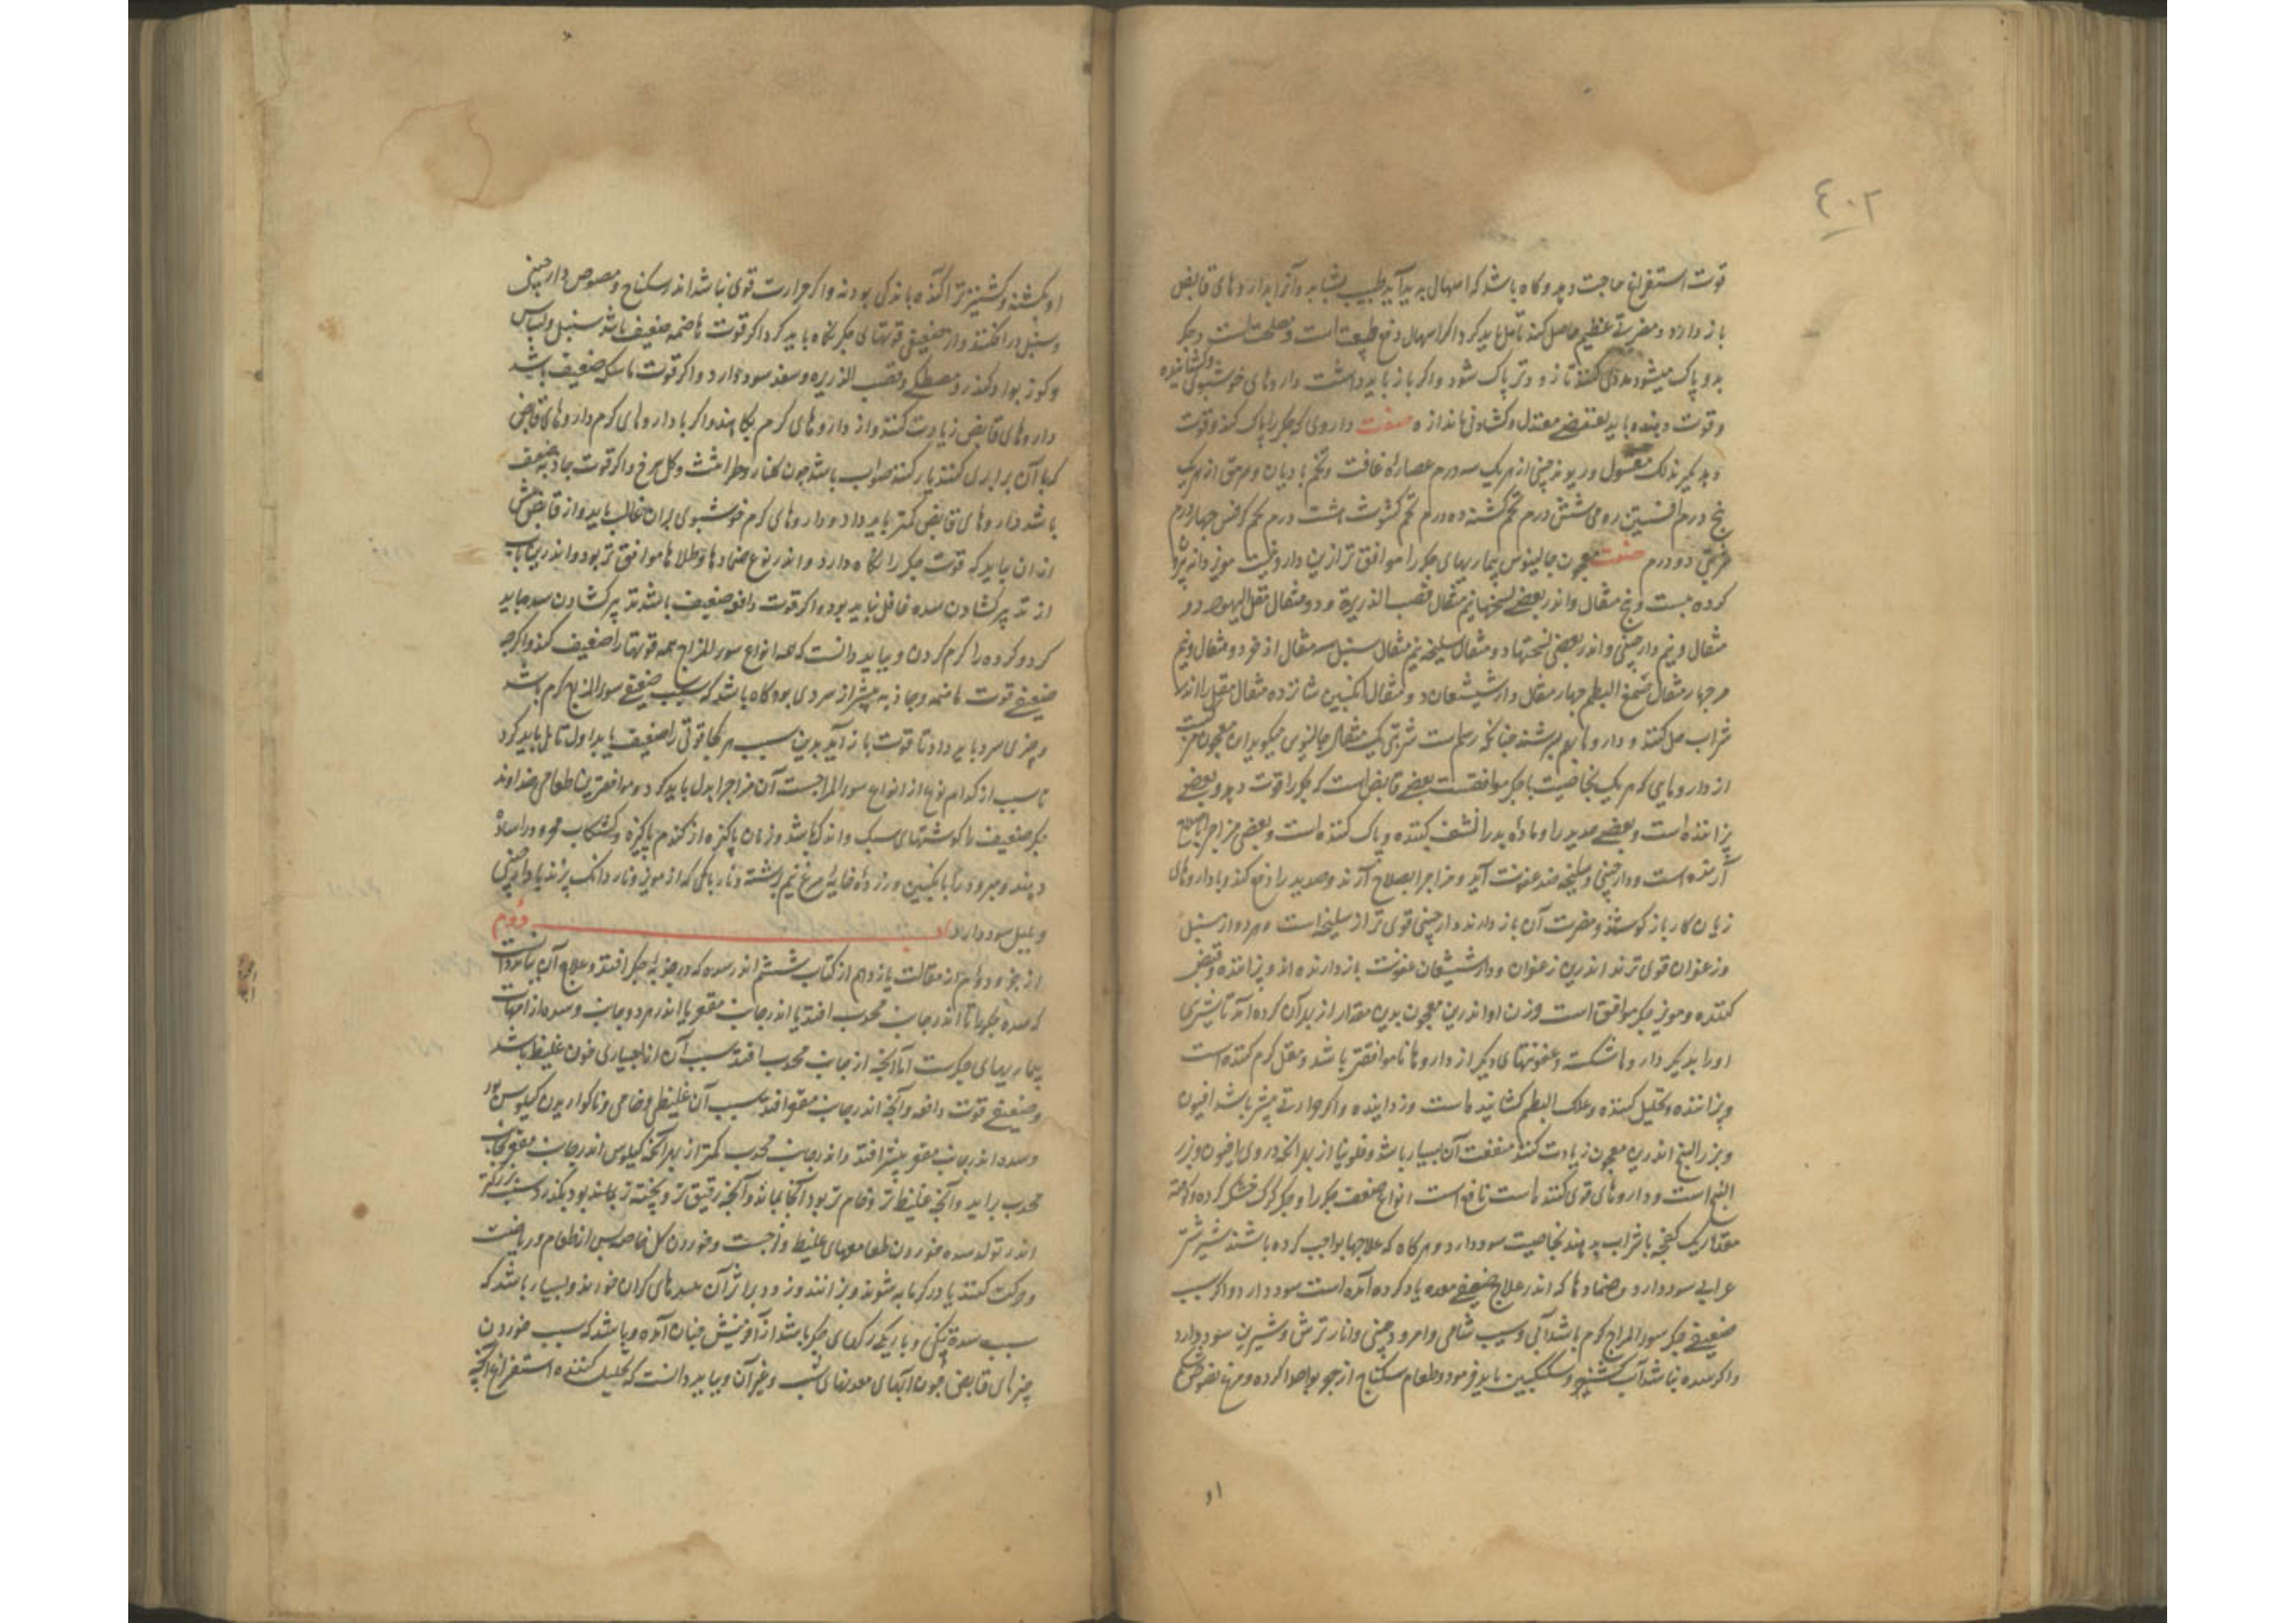 ٤٠٢
قوت استفراغ حاجت دهد وگاه باشد که اسهال پدید آید طبیب بشتابد وآنرا بداروهای قابض
باز دارد ومضرتی عظیم حاصل کند تأمل باید کرد اگر اسهال دفع طبیعت است ومصلحت است وجگر
بدو پاک میشود مددی کنند تا زودتر پاک شود واگر باز باید داشت داروهای خوشبوی وگشاینده
وقوت دهنده باید بقبضی معتدل وگشادنی باندازه صفت داروی که جگر را پاک کند وقوت
دهد بگیرند لک مغسول وریوند چینی از هریک سه درم عصاره غافت وتخم بادیان و از هریک
پنج درم افسنتین رومی شش درم تخم کشنه ده درم تخم کشوث هشت درم تخم کرفس چهار درم
شربتی دو درم صفت معجون جالینوس بیماریهای جگر را موافق تر ازین دارو نیست مویز دانه بیرون
کرده بیست وپنج مثقال واندر بعضی نسختها نیم مثقال قصب الذریرة و دو مثقال مقل الیهود دو
مثقال ونیم دارچینی واندر بعضی نسختها دو مثقال سلیخه نیم مثقال سنبل سه مثقال اذخر دو مثقال ونیم
مر چهار مثقال صمغ البطم چهار مثقال دارشیشعان دو مثقال انگبین شانزده مثقال مقل را اندر
شراب حل کنند و داروها بدو بسرشند چنانکه رسم است شربتی یک مثقال جالینوس میگوید این معجون مرکبست
از داروهایی که هر یک بخاصیت با جگر موافقست بعضی قابض است که جگر را قوت دهد وبعضی
پزاننده است وبعضی صدید را وماده بد را نشف کننده وپاک کننده است وبعضی مزاج را باصلاح
آرنده است ودارچینی وسلیخه ضد عفونت آید ومزاج را بصلاح آرند وصدید را دفع کند وبا داروهای
زیان کار باز کوشند ومضرت آن باز دارند دارچینی قوی تر از سلیخه است وهر دو از سنبل
وزعفران قوی ترند اندرین زعفران ودارشیشعان عفونت بازدارنده اند وپزاننده وقبض
کننده ومویز جگر موافق است وزن او اندرین معجون بدین مقدار از بهر آن کرده اند تا تیزی
او را بدیگر داروها شکسته وعفونتهای دیگر از داروها ناموافقتر باشد ومقل گرم کننده است
وپزاننده وتحلیل کننده وعلک البطم گشاینده است وزداینده واگر حرارتی بیشتر باشد افیون
وبزر البنج اندرین معجون زیادت کنند منفعت آن بسیار باشد وفلونیا از بهر آنکه دروی افیون وبزر
البنج است وداروهای قوی کننده است نافع است انواع ضعف جگر را وجگر گرگ خشک کرده وکوفته
مقدار یک کفچه با شراب بدهند بخاصیت سود دارد وهرگاه که علاجها بواجب کرده باشند شیر شتر
عرابی سود دارد وضمادها که اندر علاج ضعیفی معده یاد کرده آمده است سود دارد واگر سبب
ضعیفی جگر سوءالمزاج گرم باشد آبی وسیب شامی وامرود چینی وانار ترش وشیرین سود دارد
واگر سده نباشد آب کشنیز وسکنگبین باید فرمود وطعام سکباج از
او
او کشنه وکشنیز تر آگنده باندکی بودنه واگر حرارت قوی نباشد اندر سکباج ومصوص دارچینی
وسنبل در افکنند واز ضعیفی قوتهای جگر نگاه باید کرد اگر قوت هاضمه ضعیف باشد سنبل وبسباسه
وگوز بوا وکندر ومصطکی وقصب الذریره وسعد سود دارد واگر قوت ماسکه ضعیف باشد
داروهای قابض زیادت کنند واز داروهای گرم بکاهند واگر با داروهای گرم داروهای قابض
که با آن برابری کنند یار کنند صواب باشد چون گلنار وطراثیث وگل سرخ واگر قوت جاذبه ضعیف
باشد داروهای قابض کمتر باید داد وداروهای گرم خوشبوی بران غالب باید واز قابض بیش
ازان باید که قوت جگر را نگاه دارد واندر نوع ضمادها وطلاها موافق تر بود واندرین باب
از تدبیر گشادن سده غافل نباید بود واگر قوت دافعه ضعیف باشد تدبیر گشادن سده باید
کرد وگرده را گرم کردن وبباید دانست که همه انواع سوءالمزاج همه قوتها را ضعیف کند واگرچه
ضعیفی قوت هاضمه وجاذبه بیشتر از سردی بود گاه باشد که سبب ضعیفی سوءالمزاج گرم باشد
وچیزی سرد باید داد تا قوت باز آید بدین سبب هرگاه قوتی را ضعیف یابد اول تأمل باید کرد
تا سبب از کدام نوع از انواع سوءالمزاجست آن مزاج را بدل باید کرد وموافقترین طعامی خداوند
جگر ضعیف را گوشتهای سبک واندک باشد ونان پاکیزه از گندم پاکیزه وکشکاب محرور را ساده
دهند ومبرود را با انگبین وزرده خایه مرغ نیم برشته ونارباکی که از مویز وناردانک پزند با دارچینی
وپلپل سود دارد باب دوم
از جزو دوم از مقالت یازدهم از کتاب ششم اندر سده که در جزوهاء جگر افتد وعلاج آن بباید دانست
که سده جگر یا اندر جانب محدب افتد یا اندر جانب مقعر یا اندر هر دو جانب وسده از امهات
بیماریهای جگرست اما آنچه از جانب محدب افتد سبب آن بسیاری خون غلیظ باشد
وضعیفی قوت دافعه وآنچه اندر جانب مقعر افتد سبب آن غلیظی وخامی وناگواریدن کیلوس بود
وسده اندر جانب مقعر بیشتر افتد واندر جانب محدب کمتر از بهر آنکه کیلوس اندر جانب مقعر
محدب برآید وآنچه غلیظ تر وخام تر بود آنجا بماند وآنچه رقیق تر وپخته تر باشد بگذرد وسبب بزرگتر
اندر تولد سده خوردن طعامهای غلیظ ولزجست وخوردن گل خاصه پس از طعام وریاضت
وحرکت کنند یا در گرمابه شوند وبزانند وزود بر اثر آن شرابهای گران خورند وبسیار باشد که
سبب سده تنگی وباریکی رگهای جگر باشد از آفرینش چنان آمده وباشد که سبب خوردن
چیزهای قابض چون آبهای معدنهای شب وغیر آن وبباید دانست که تحلیل کننده استفراغ آنچه